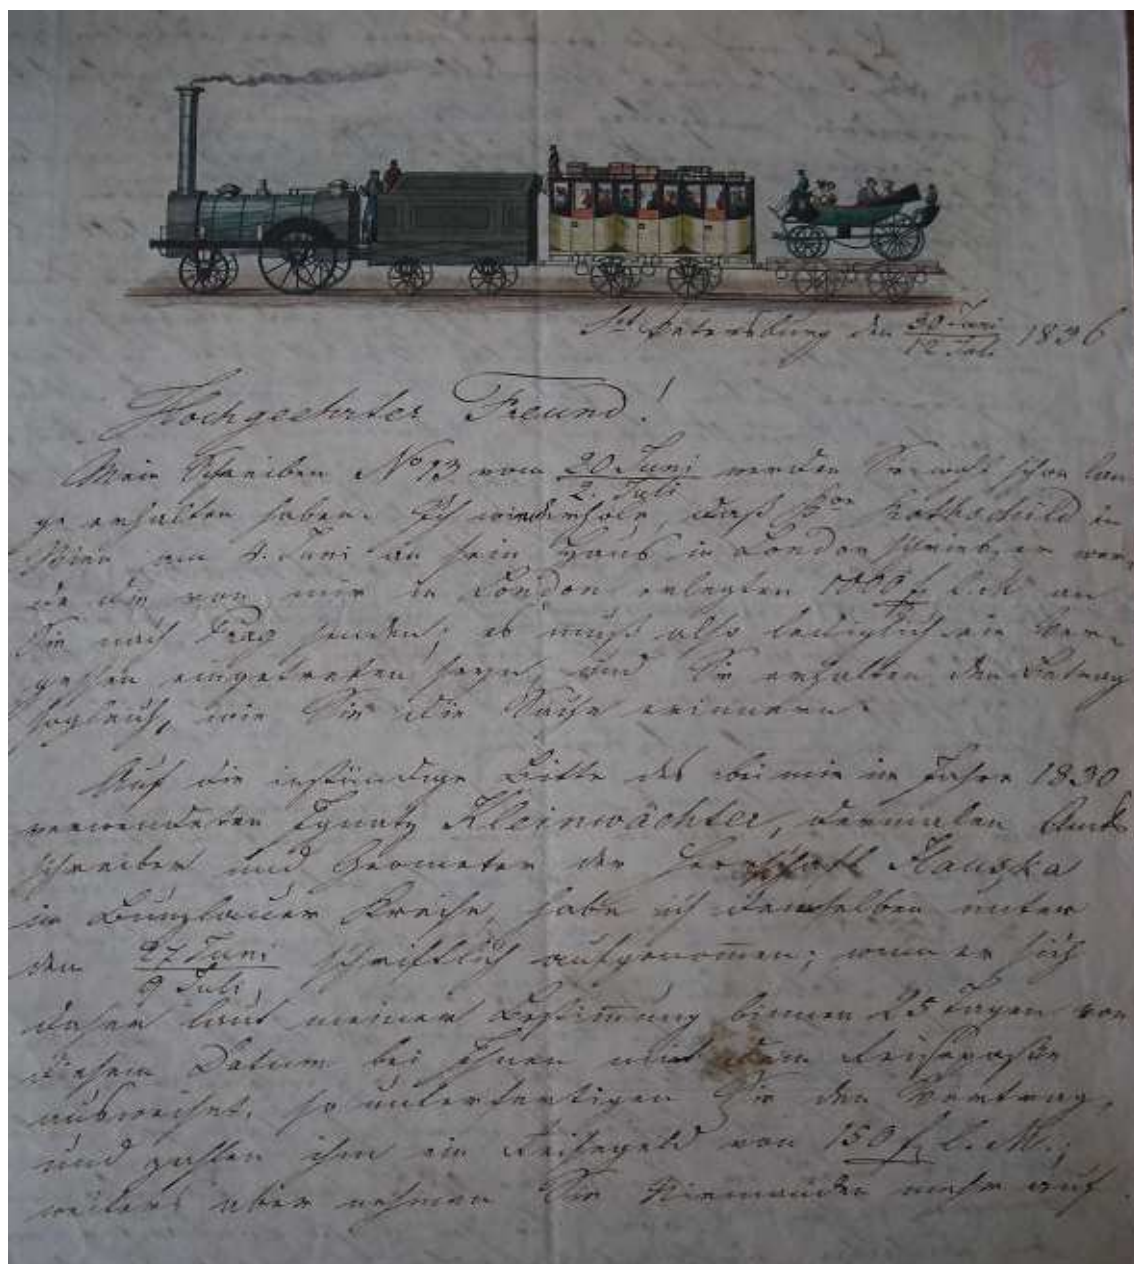 St Petersburg den 30 Juni / 12 Juli 1836
Hochgeehrter Freund!
Mein Schreiben No 13 vom 20 Juni / 2. Juli werden Sie wohl schon lan-
ge erhalten haben. Ich wiederhole, daß Rothschild in
Wien am 4. Juni an sein Haus in London schrieb, er wer-
de die von mir in London erlegten 1000 f C.M. an
Sie nach Prag senden; es muß also lediglich ein Ver-
gessen eingetreten seyn, und Sie erhalten den Betrag
sogleich, wie Sie die Sache erinnern.
Auf die inständige Bitte des bei mir im Jahre 1830
verwendeten Ignatz Kleinwächter, dermalen Amts
schreiber und Geometer der Herrschaft Hauska
im Bunzlauer Kreise, habe ich denselben unter
dem 27 Juni / 9 Juli schriftlich aufgenommen; wenn er sich
daher laut meiner Bestimmung binnen 25 Tagen von
diesem Datum bei Ihnen mit dem Reisepasse
ausweiset, so unterfertigen Sie den Vertrag,
und zahlen ihm ein Reisegeld von 150 f C.M.;
weiters aber nehmen Sie Niemanden mehr auf